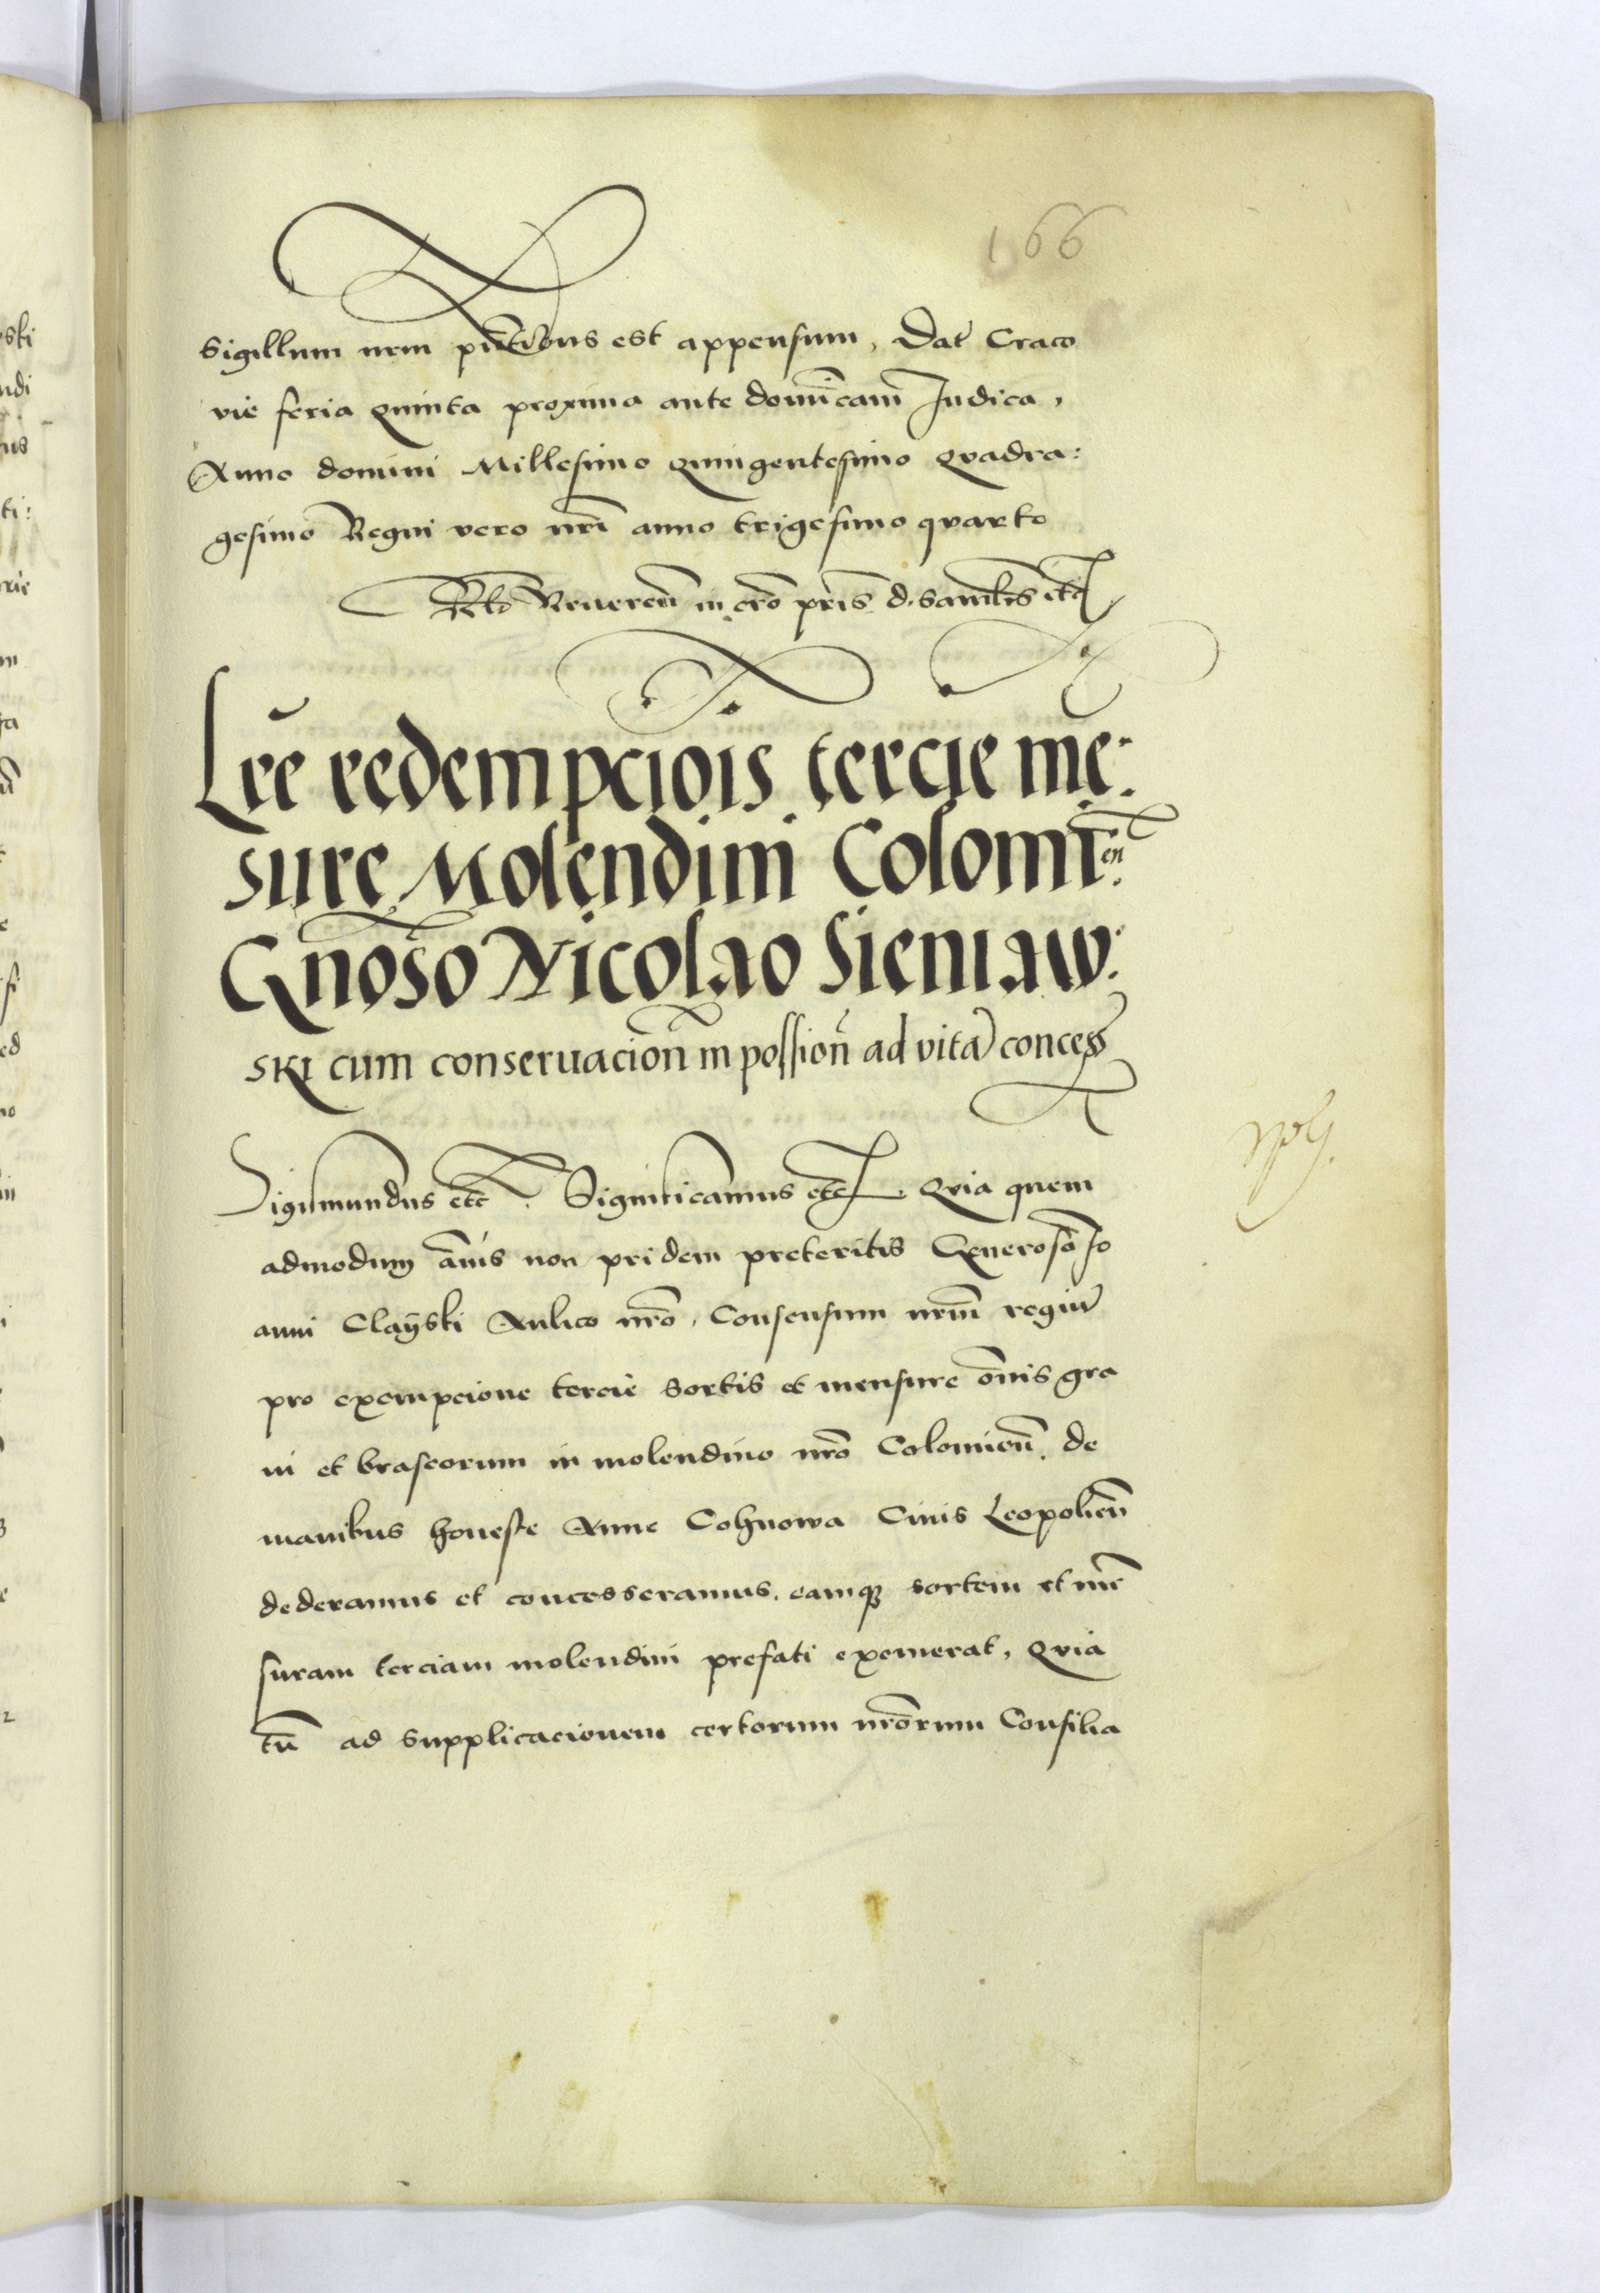 166
Sigillum nrm pñtibus est appensum, Dat Craco
vie feria quinta proxima ante dominicam Judica,
Anno domini Millesimo quingentesimo quadra:
gesimo Regni vero nri anno trigesimo quarto
Rlo Reueren in cro pris d. Samlis etc
Lre redempciois tercie me:
sure Molendini Colomien.
Gnoso Nicolao Sieniaw:
ski cum conseruacion in possion ad vita concess
Sigismundus etc Significamus etc. Quia quem
admodum annis non pridem preteritis Generoso Jo
anni Clayski Aulico nro, Consensum nrum regium
pro exempcione tercie sortis et mensure omnis gra
ni et braseorum in molendino nro Colomien. de
manibus honeste Anne Cohnowa Ciuis Leopolien
dederamus et concesseramus. eamque sortem et men
suram terciam molendini prefati exemerat, Quia
tn ad supplicacionem certorum nrorum Consilia